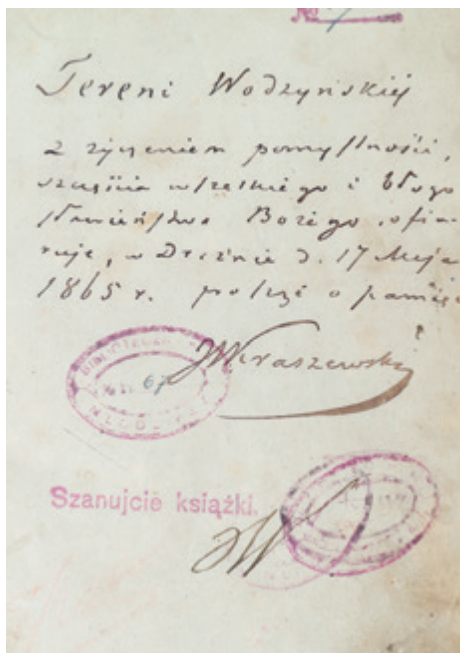 №
Tereni Wodzyńskiéj
z życzeniem pomyślności,
szczęścia wszelkiego i błogo
sławieństwa Bożego ofia-
ruje, w Dreznie d. 17 Maja
1865 r. prosząc o pamięć
JKraszewski
67
Szanujcie książki.